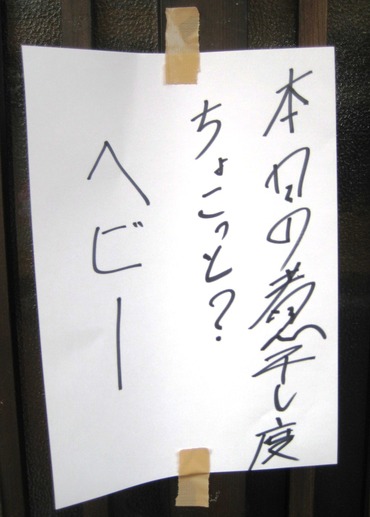 本日の煮干し度
ちょこっと？
ヘビー